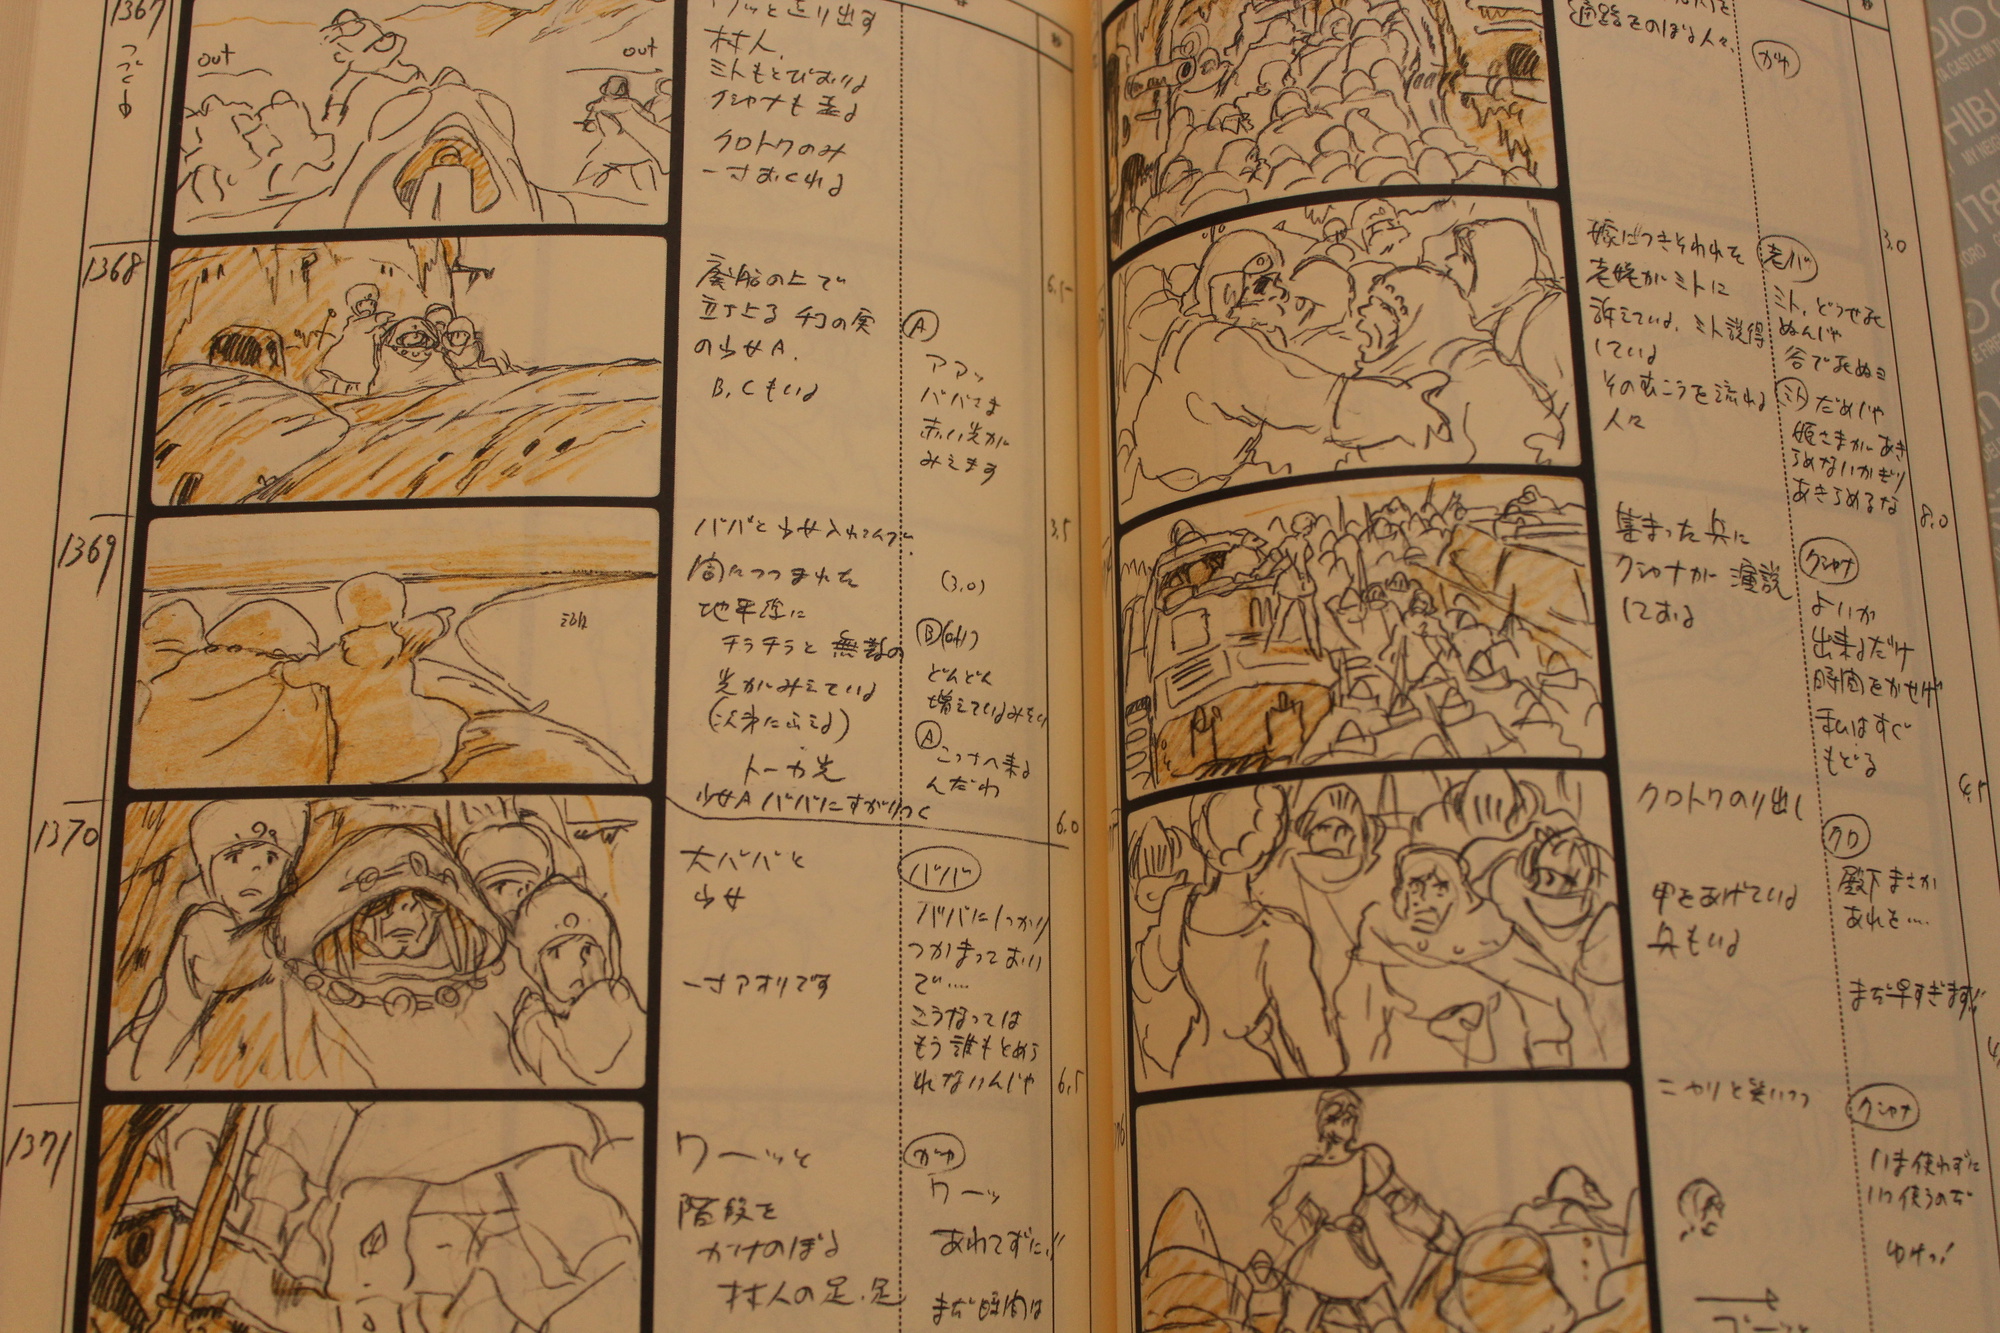 1367
つづく
out
out
ワッと走り出す
村人、
ミトもとびおりる
クシャナも走る
クロトワのみ
一寸おくれる
1368
廃船の上で
立上る チコの実
の少女A.
B,Cもいる
A
アアッ
ババさま
赤い光が
みえます
6.5
1369
ババと少女入れこんで、
闇につつまれた
地平線に
チラチラと無数の
光がみえている
(次第にふえる)
トーカ光
少女A ババにすがりつく
3.5
(3.0)
B
どんどん
増えているみたい
A
こっちへ来る
んだわ
6.0
1370
大ババと
少女
一寸アオリです
ババ
ババにしっかり
つかまっておい
で‥‥
こうなっては
もう誰もとめら
れないんじゃ
6.5
1371
ワーッと
階段を
かけのぼる
村人の足、足
ガヤ
ワーッ
あわてずに!!
まだ時間は
通路をのぼる人々、
ガヤ
3.0
嫁につきそわれた
老婆がミトに
訴えている、ミト説得
している
その向こうを流れる
人々
老バ
ミト、どうせ死
ぬんじゃ
谷で死ぬ
ミト だめじゃ
姫さまがあき
らめないかぎり
あきらめるな
8.0
集まった兵に
クシャナが演説
しておる
クシャナ
よいか
出来るだけ
時間をかせげ
私はすぐ
もどる
4.5
クロトワのり出し
甲をあげている
兵もいる
クロ
殿下まさか
あれを‥‥
まだ早すぎます!!
ニヤリと笑いつつ
クシャナ
いま使わずに
いつ使うのだ
ゆけっ!